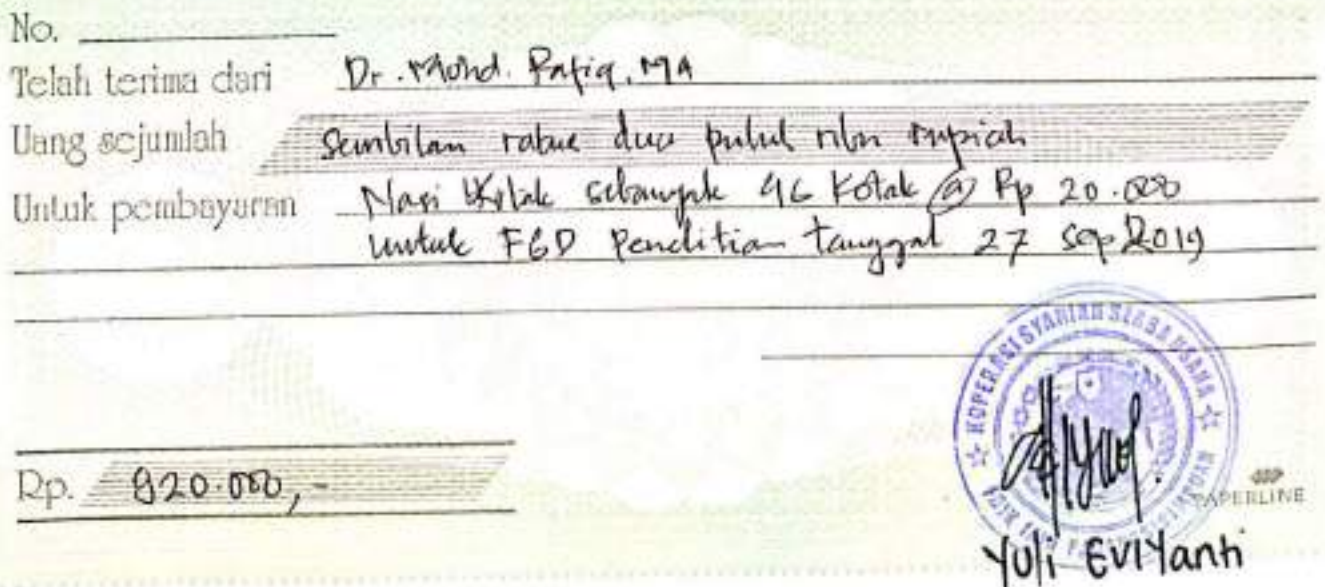 No.
Telah terima dari Dr. Mohd. Rafiq, MA
Uang sejumlah Sembilan ratus dua puluh ribu rupiah
Untuk pembayaran Nasi Kotak sebanyak 46 Kotak @ Rp 20.000
untuk FGD Penelitian tanggal 27 Sep 2019
KOPERASI SYARIAH SERBA USAHA
Rp. 920.000,-
PAPERLINE
Yuli Eviyanti